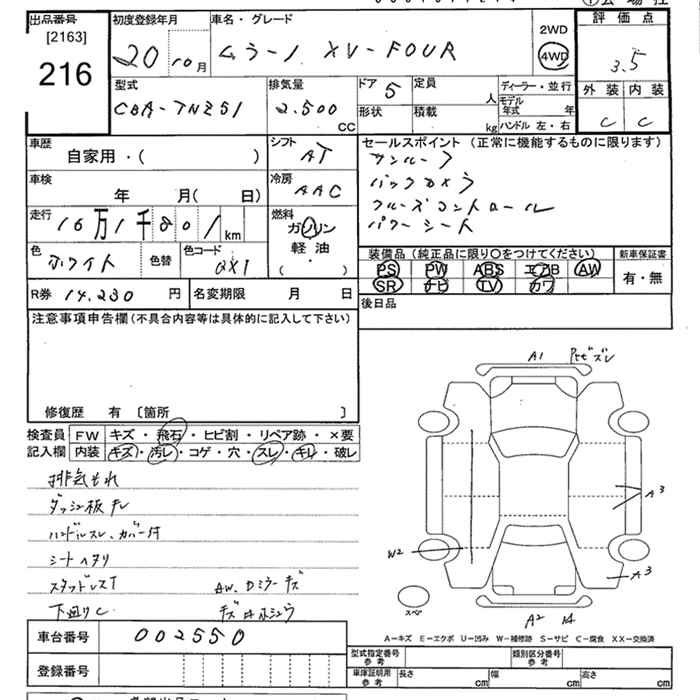 出品番号 [2163] 216
初度登録年月 20 10月
車名・グレード ムラーノ XV-FOUR
2WD 4WD
評価点 3.5
外装 内装
C C
型式 CBA-TNZ51
排気量 2.500 CC
ドア 5
形状
定員 人
積載 kg
ディーラー・並行
モデル年式 年
ハンドル 左・右
車歴 自家用・( )
シフト AT
車検 年 月( 日)
冷房 AAC
走行 16万1千801 km
燃料 ガソリン 軽油 ( ・ )
色 ホワイト 色替 色コード QX1
R券 14.230 円 名変期限 月 日
セールスポイント (正常に機能するものに限ります)
サンルーフ
バックカメラ
クルーズコントロール
パワーシート
装備品(純正品に限り○をつけてください) 新車保証書
PS PW ABS エアB AW 有・無
SR ナビ TV カワ
後日品
注意事項申告欄(不具合内容等は具体的に記入して下さい)
修復歴 有 〔箇所 〕
検査員 FW キズ・飛石・ヒビ割・リペア跡・×要
記入欄 内装 キズ・汚レ・コゲ・穴・スレ・キレ・破レ
排気もれ
ダッシュ板キレ
ハンドルスレ、カバー付
シートヘタリ
スタッドレスT AW、Dミラーキズ
下廻りC
A1
A3
W2
A3
スペア
A2
A−キズ E−エクボ U−凹み W−補修跡 S−サビ C−腐食 XX−交換済
車台番号 002550
登録番号
型式指定番号 参考 類別区分番号 参考
車庫証明用 参考 長さ cm 幅 cm 高さ cm